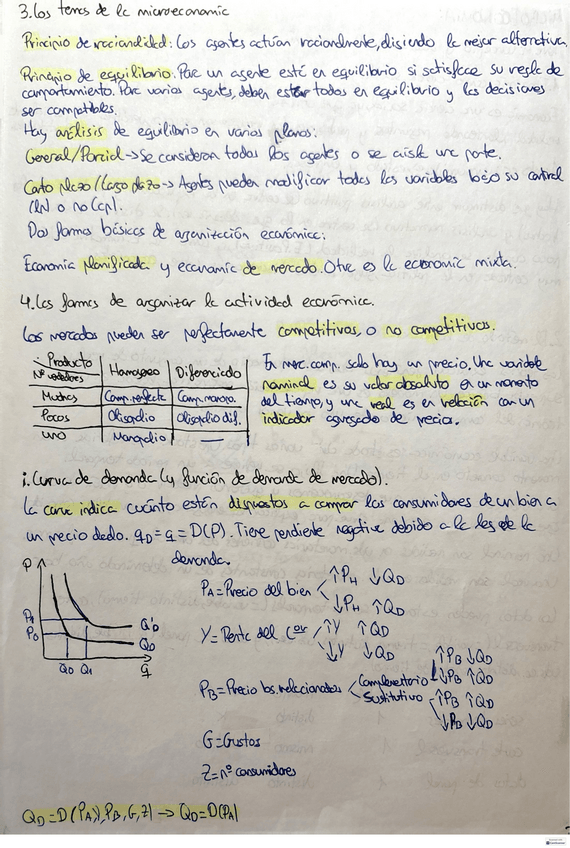 3. Los temas de la microeconomía
Principio de racionalidad: Los agentes actúan racionalmente, eligiendo la mejor alternativa.
Principio de equilibrio: Para un agente está en equilibrio si satisface su regla de
comportamiento. Para varios agentes, deben estar todos en equilibrio y las decisiones
ser compatibles.
Hay análisis de equilibrio en varios planos:
General/Parcial → Se consideran todos los agentes o se aísla una parte.
Corto plazo/Largo plazo → Agentes pueden modificar todas las variables bajo su control
(LN o no (cp).
Dos formas básicas de organización económica:
Economía planificada y economía de mercado. Otra es la economía mixta.
4. Las formas de organizar la actividad económica.
Los mercados pueden ser perfectamente competitivos, o no competitivos.
Producto
Nº vendedores
Homogéneo Diferenciado
Muchos Comp. perfecta Comp. monop.
Pocos Oligopolio Oligopolio dif.
uno Monopolio —
En merc. comp. solo hay un precio. Una variable
nominal es su valor absoluto en un momento
del tiempo, y una real es en relación con un
indicador agregado de precios.
i. Curva de demanda (y función de demanda de mercado).
La curva indica cuánto están dispuestos a comprar los consumidores de un bien a
un precio dado. qD = q = D(P). Tiene pendiente negativa debido a la ley de la
demanda.
P
P1
P0
Q'D
QD
Q0 Q1 q
PA = Precio del bien
↑PH ↓QD
↓PH ↑QD
Y = Renta del Cor
↑Y ↑QD
↓Y ↓QD
PB = Precio bs. relacionados
Complementario ↑PB ↓QD
↓PB ↑QD
Sustitutivo ↑PB ↑QD
↓PB ↓QD
G = Gustos
Z = nº consumidores
QD = D(PA), PB, G, Z) → QD = D(PA)